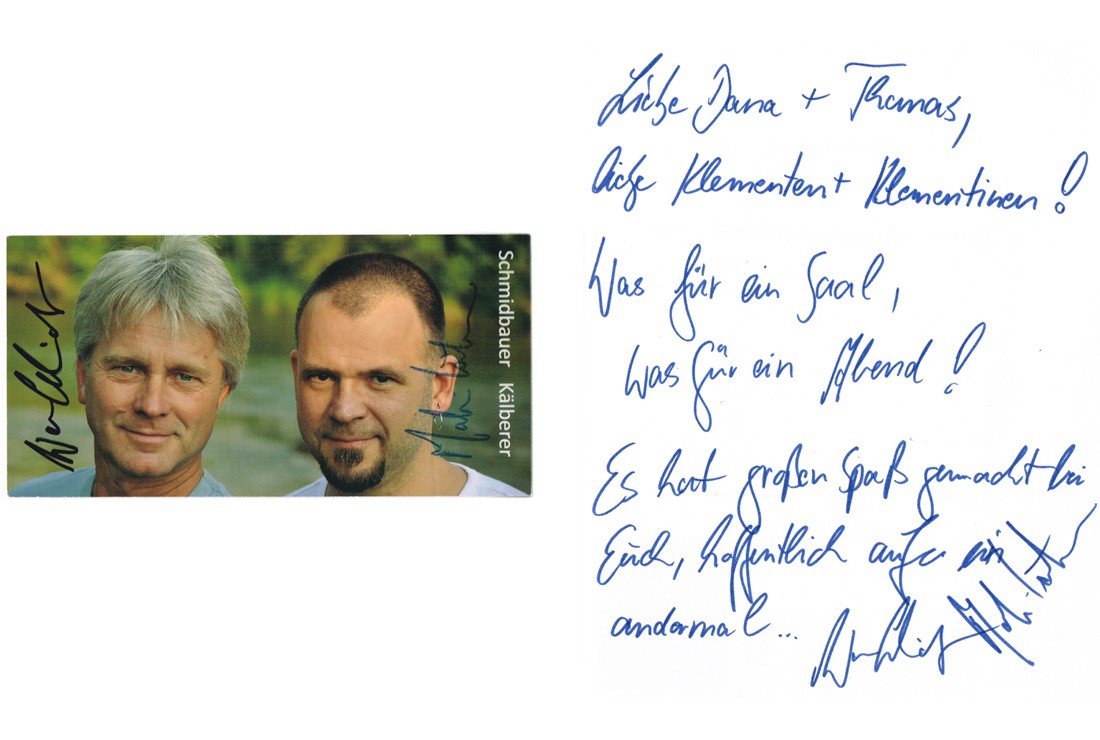 Schmidbauer Kälberer
Liebe Dana + Thomas,
liebe Klementen + Klementinen!
Was für ein Saal,
was für ein Abend!
Es hat großen Spaß gemacht bei
Euch, hoffentlich auf
andermal...